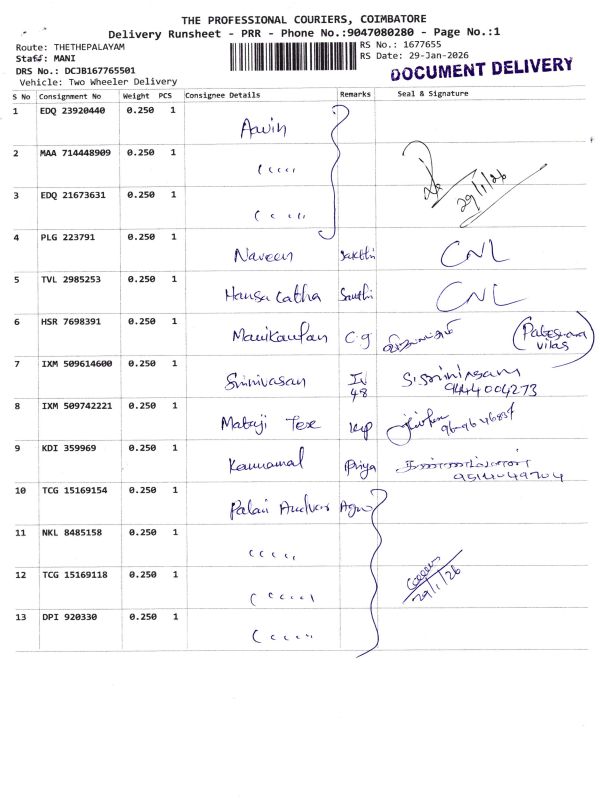 THE PROFESSIONAL COURIERS, COIMBATORE
Delivery Runsheet - PRR - Phone No.:9047080280 - Page No.:1
Route: THETHEPALAYAM
Staff: MANI
DRS No.: DCJB167765501
Vehicle: Two Wheeler Delivery
RS No.: 1677655
RS Date: 29-Jan-2026
DOCUMENT DELIVERY
S No Consignment No Weight PCS Consignee Details Remarks Seal & Signature
1 EDQ 23920440 0.250 1
2 MAA 714448909 0.250 1 " 29/1/26
3 EDQ 21673631 0.250 1 "
4 PLG 223791 0.250 1 Naveen Sakthi CNL
5 TVL 2985253 0.250 1 Hansa Latha Santhi CNL
6 HSR 7698391 0.250 1 Manikandan C.g
7 IXM 509614600 0.250 1 Srinivasan IV 48 S. Srinivasan
9444004273
8 IXM 509742221 0.250 1 Mataji Tex
9 KDI 359969 0.250 1 Kannamal Priya
10 TCG 15169154 0.250 1 Palani
11 NKL 8485158 0.250 1 "
12 TCG 15169118 0.250 1 " 29/1/26
13 DPI 920330 0.250 1 "